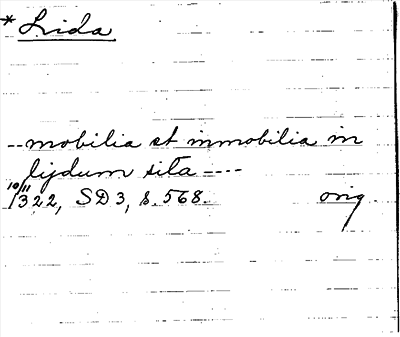 *Lida
--mobilia et inmobilia in
lijdum sita ----
10/11 1322, SD3, s. 568. orig